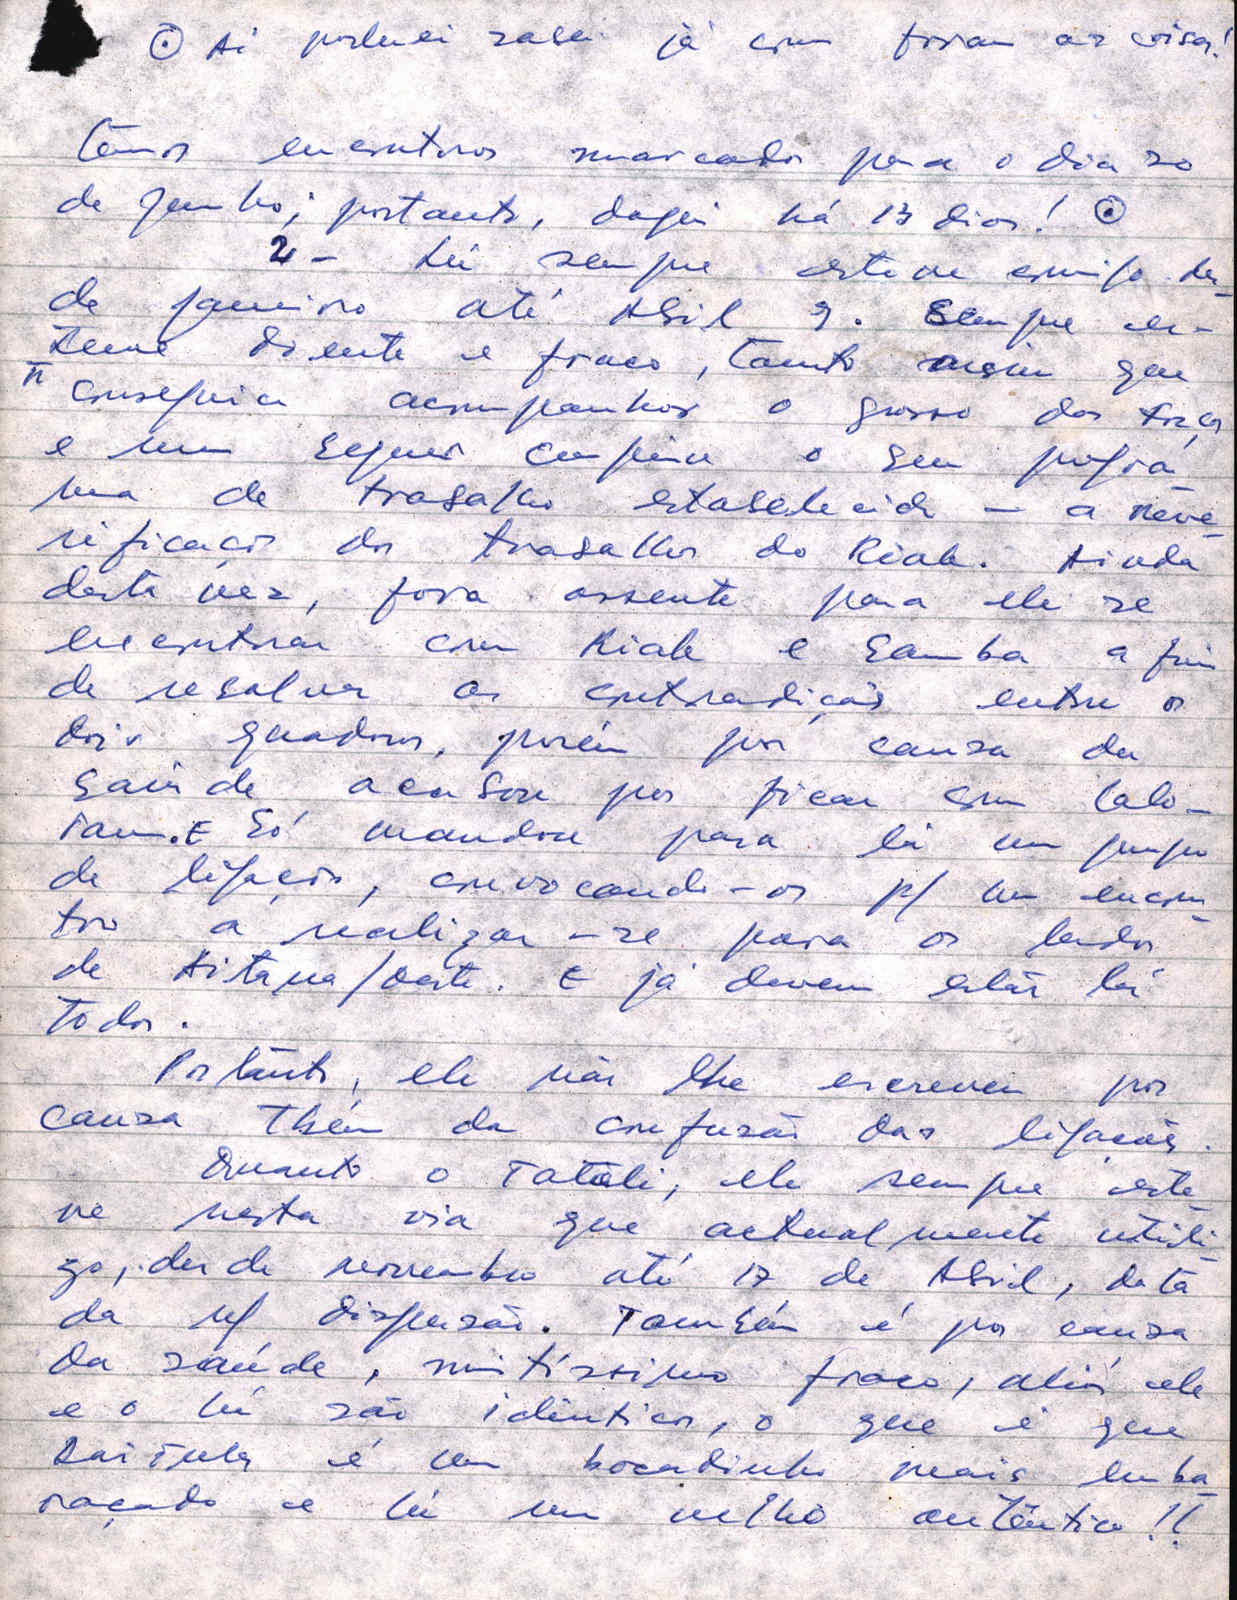 ⊙ Aí poderei saber já como foram as coisas!
Temos encontros marcados para o dia 20
de Junho; portanto, daqui há 13 dias! ⊙
2 - Lú sempre esteve comigo des-
de Janeiro até Abril 9. Sempre es-
teve doente e fraco, tanto assim que
ñ conseguia acompanhar o grosso das forças
e nem sequer cumpriu o seu progra-
ma de trabalho estabelecido — a
dos trabalhos do Kiala. Ainda
desta vez, fora assente para ele se
encontrar com Kiala e Samba a fim
de resolver as contradições entre os
dois quadros, porém por causa da
saúde acabou por ficar com
E Só mandou para lá um grupo
de ligação, convocando-os p/ um encon-
tro a realizar-se para os lados
de /Oeste. E já devem estar lá
todos.
Portanto, ele não lhe escreveu por
causa tbém da confusão das ligações.
Quanto o Tatali, ele sempre este-
ve nesta via que actualmente utili-
zo, desde novembro até 17 de Abril, data
da n/ dispersão. Também é por causa
da saúde, muitíssimo fraco, aliás ele
e o Lú são idênticos, o que é que
é um bocadinho mais emba-
raçado e Lú um velho autêntico!!